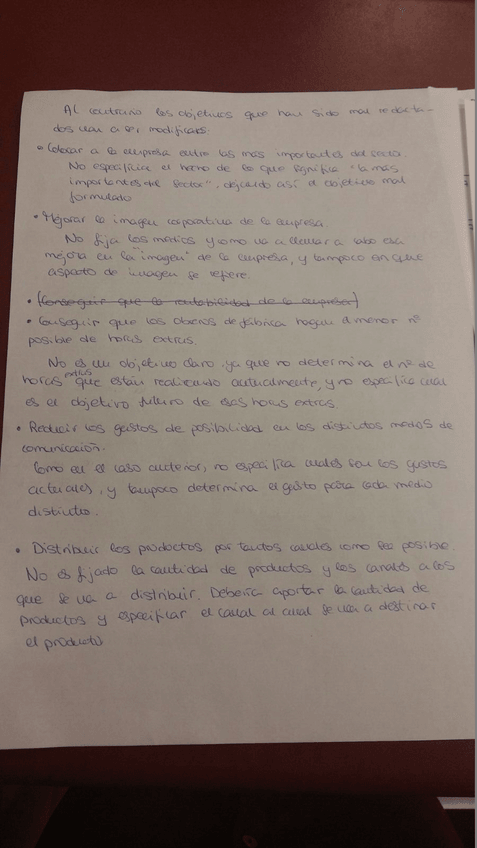 Al contrario los objetivos que han sido mal redacta-
dos van a ser modificados.
• Colocar a la empresa entre las más importantes del sector.
No especifica el hecho de lo que significa "la más
importantes del sector", dejando así el objetivo mal
formulado
• Mejorar la imagen corporativa de la empresa.
No fija los medios y como va a llevar a cabo esa
mejora en la "imagen" de la empresa, y tampoco en que
aspecto de imagen se refiere.
• (Conseguir que la rentabilidad de la empresa)
• Conseguir que los obreros de fábrica hagan el menor nº
posible de horas extras.
No es un objetivo claro, ya que no determina el nº de
horas extras que están realizando actualmente, y no especifica cual
es el objetivo futuro de esas horas extras.
• Reducir los gastos de posibilidad en los distintos medios de
comunicación.
Como en el caso anterior, no especifica cuales son los gastos
actuales, y tampoco determina el gasto para cada medio
distinto.
• Distribuir los productos por tantos canales como sea posible.
No es fijado la cantidad de productos y los canales a los
que se va a distribuir. Debería aportar la cantidad de
productos y especificar el canal al cual se va a destinar
el producto